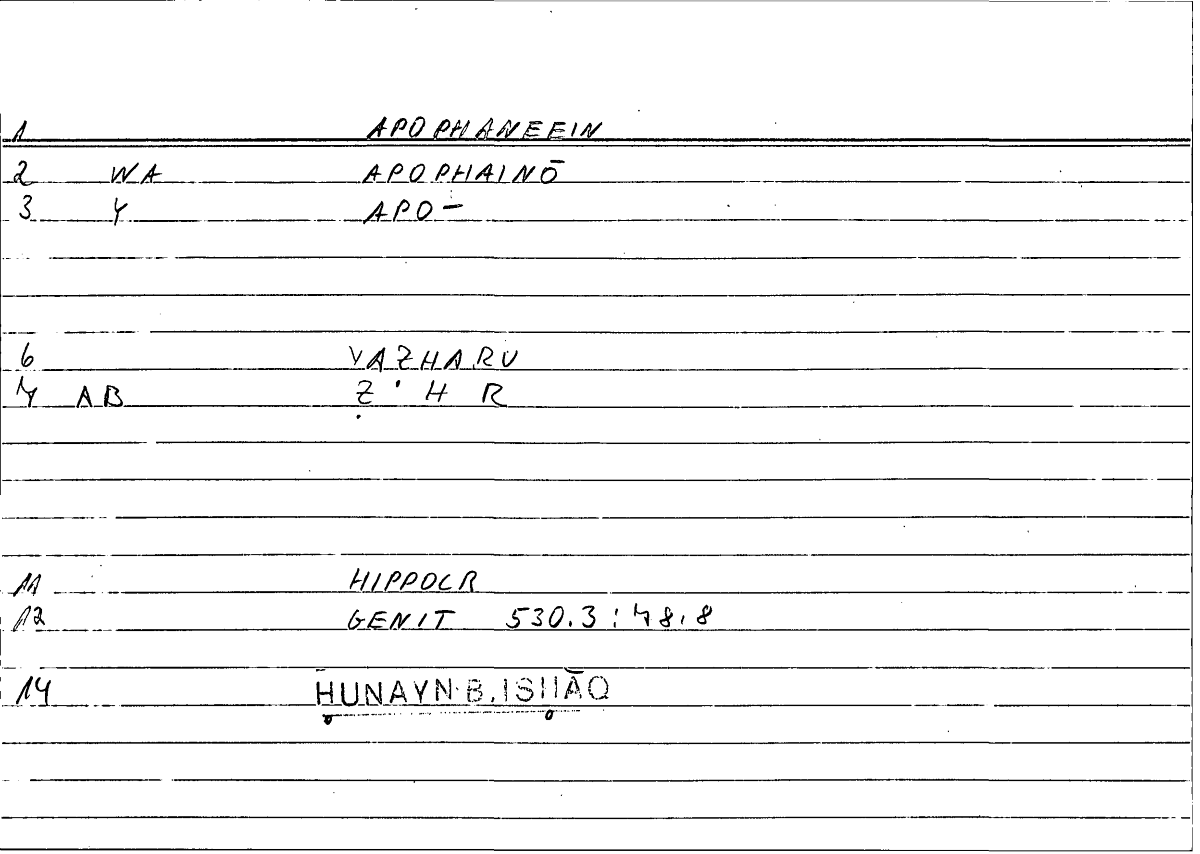 1 APOPHANEEIN
2 WA APOPHAINŌ
3 Y APO-
6 YAZHARU
7 AB Ẓ ' H R
11 HIPPOCR
12 GENIT 530.3 : 48,8
14 ḤUNAYN B. ISḤĀQ